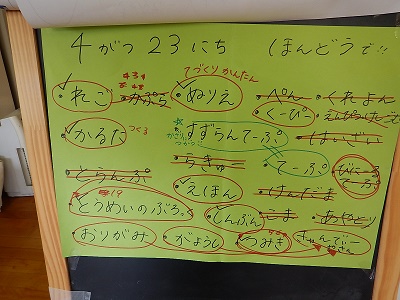 4がつ23にち ほんどうで!!
れご かぷら ぬりえ ぺん くれよん
てづくり かんたん
くーぴー
かるた つくる すずらんてーぷ はいざい
とらんぷ らきゅー てーぷ
えほん けんだま
とうめいのぶろっく しんぶん こま あやとり
おりがみ がようし つみき